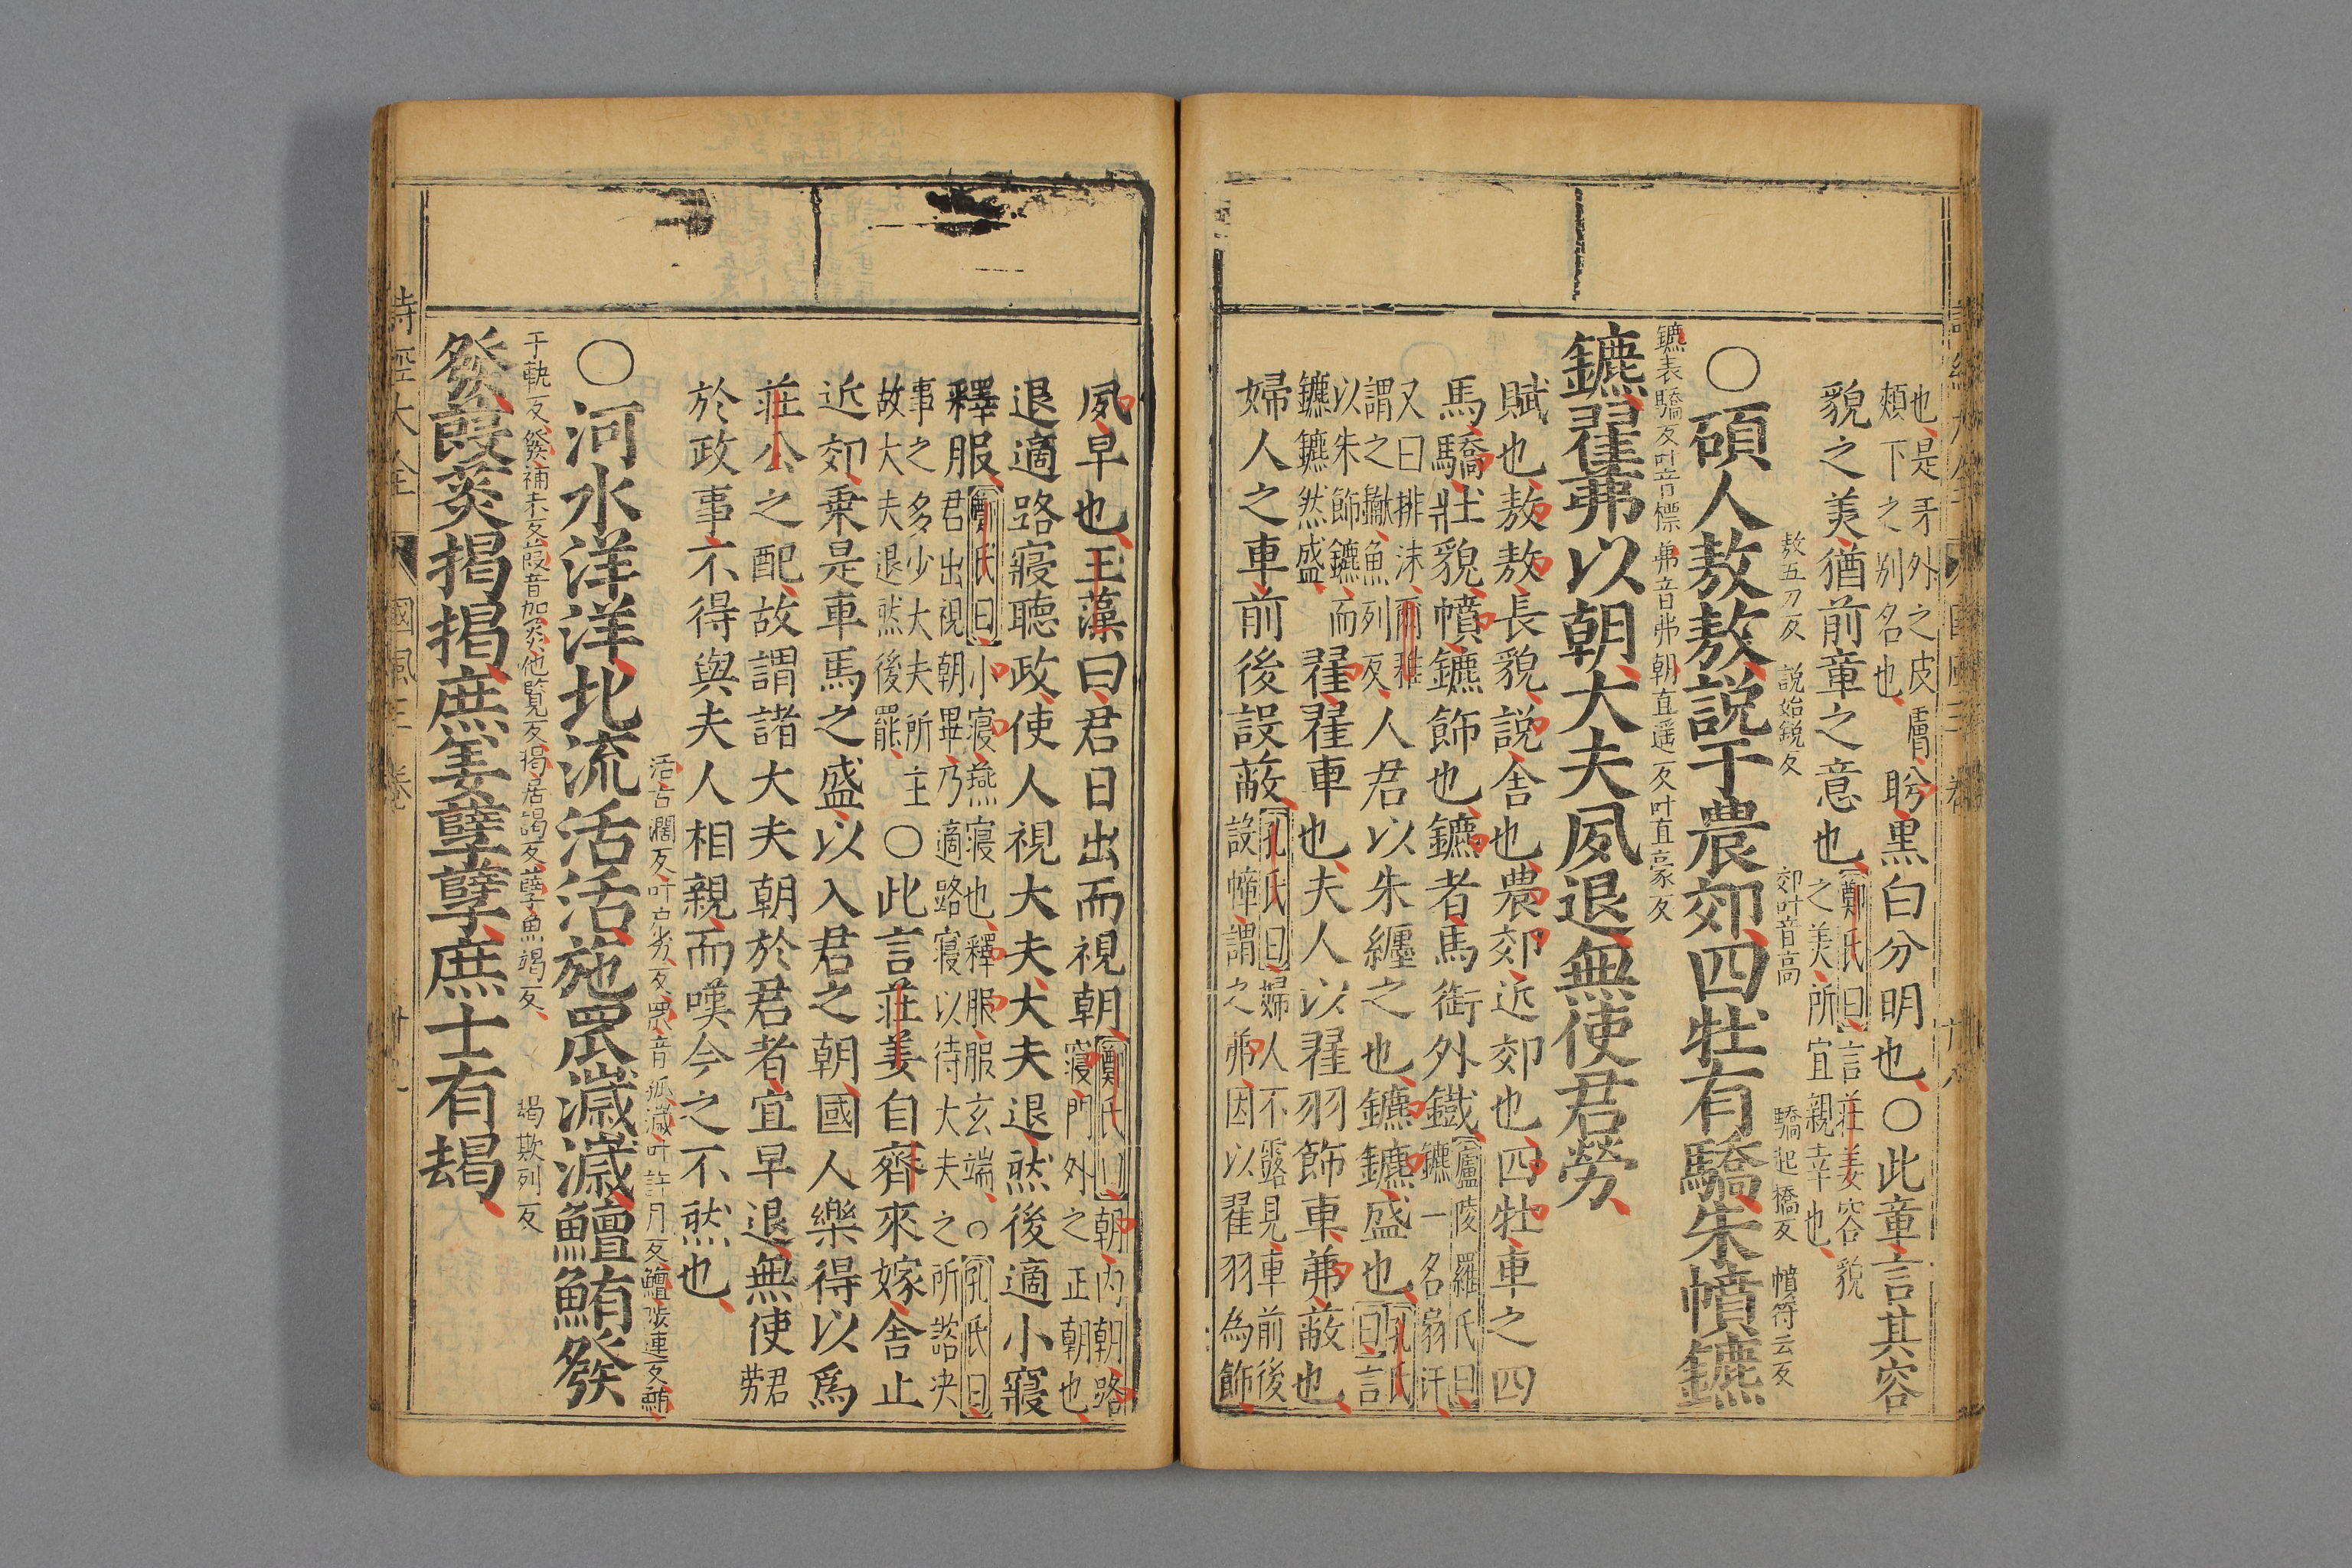 也是牙外之皮膚
頰下之別名也
盼黑白分明也○此章言其容
貌之美猶前章之意也
鄭氏曰言莊姜容貌
之美所宜親幸也
敖五刀反 說始銳反 郊叶音高 驕起橋反 幩符云反
○碩人敖敖說于農郊四牡有驕朱幩鑣
鑣表驕反叶音標 茀音弗朝直遥反叶直豪反
鑣翟茀以朝大夫夙退無使君勞
賦也敖敖長貌說舍也農郊近郊也四牡車之四
馬驕壯貌幩鑣飾也鑣者馬銜外鐵
廬陵羅氏曰
鑣一名扇汗
又曰排沫爾雅
謂之钀魚列反
人君以朱纏之也鑣鑣盛也
孔氏
曰言
以朱飾鑣而
鑣鑣然盛
翟翟車也夫人以翟羽飾車茀蔽也
婦人之車前後設蔽
孔氏曰婦人不露見車前後
設幛謂之茀因以翟羽為飾
夙早也玉藻曰君日出而視朝
鄭氏曰朝內朝路
寢門外之正朝也
退適路寢聽政使人視大夫大夫退然後適小寢
釋服
鄭氏曰小寢燕寢也釋服服玄端○孔氏曰
君出視朝畢乃適路寢以待大夫之所諮決
事之多少大夫所主
故大夫退然後罷
○此言莊姜自齊來嫁舍止
近郊乘是車馬之盛以入君之朝國人樂得以爲
莊公之配故謂諸大夫朝於君者宜早退無使君勞
於政事不得與夫人相親而嘆今之不然也
活古濶反叶戶劣反罛音孤濊叶許月反鱣陟連反鮪
○河水洋洋北流活活施罛濊濊鱣鮪發
于軌反發補末反葭音加菼他覽反揭居謁反孽魚竭反 朅欺列反
發葭菼揭揭庶姜孽孽庶士有朅
詩經大全 國風三卷